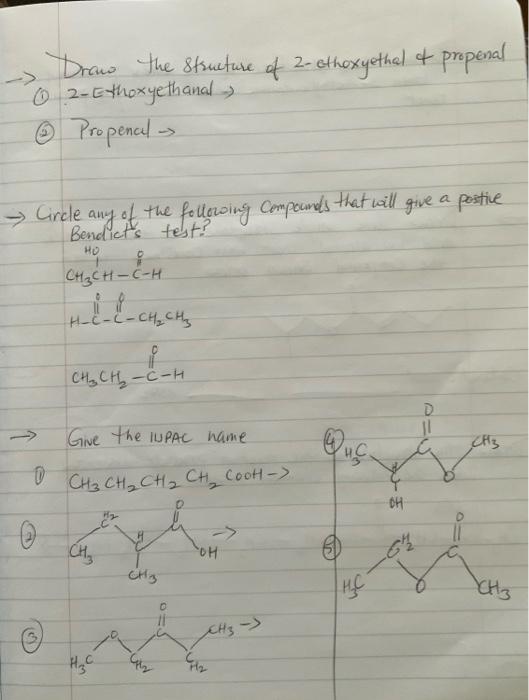 → Draw the structure of 2-ethoxyethal & propenal
① 2-Ethoxyethanal →
② Propenal →
→ Circle any of the following Compounds that will give a postive
Bendict's test?
HO O
CH3CH-C-H
O O
H-C-C-CH2CH3
O
CH3CH2-C-H
→ Give the IUPAC name
① CH3CH2CH2CH2COOH→
② CH3 H2C H CH3 O OH →
③ H3C O CH2 O C CH2 CH3→
④ H3C C OH O C O CH3
⑤ H3C CH2 O O C CH3